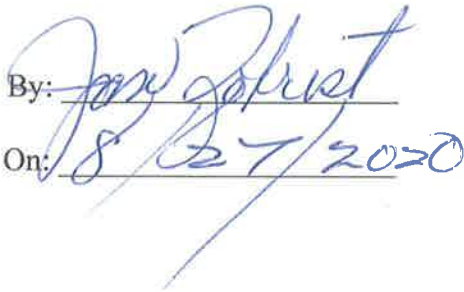 By:
On: 8/27/2020